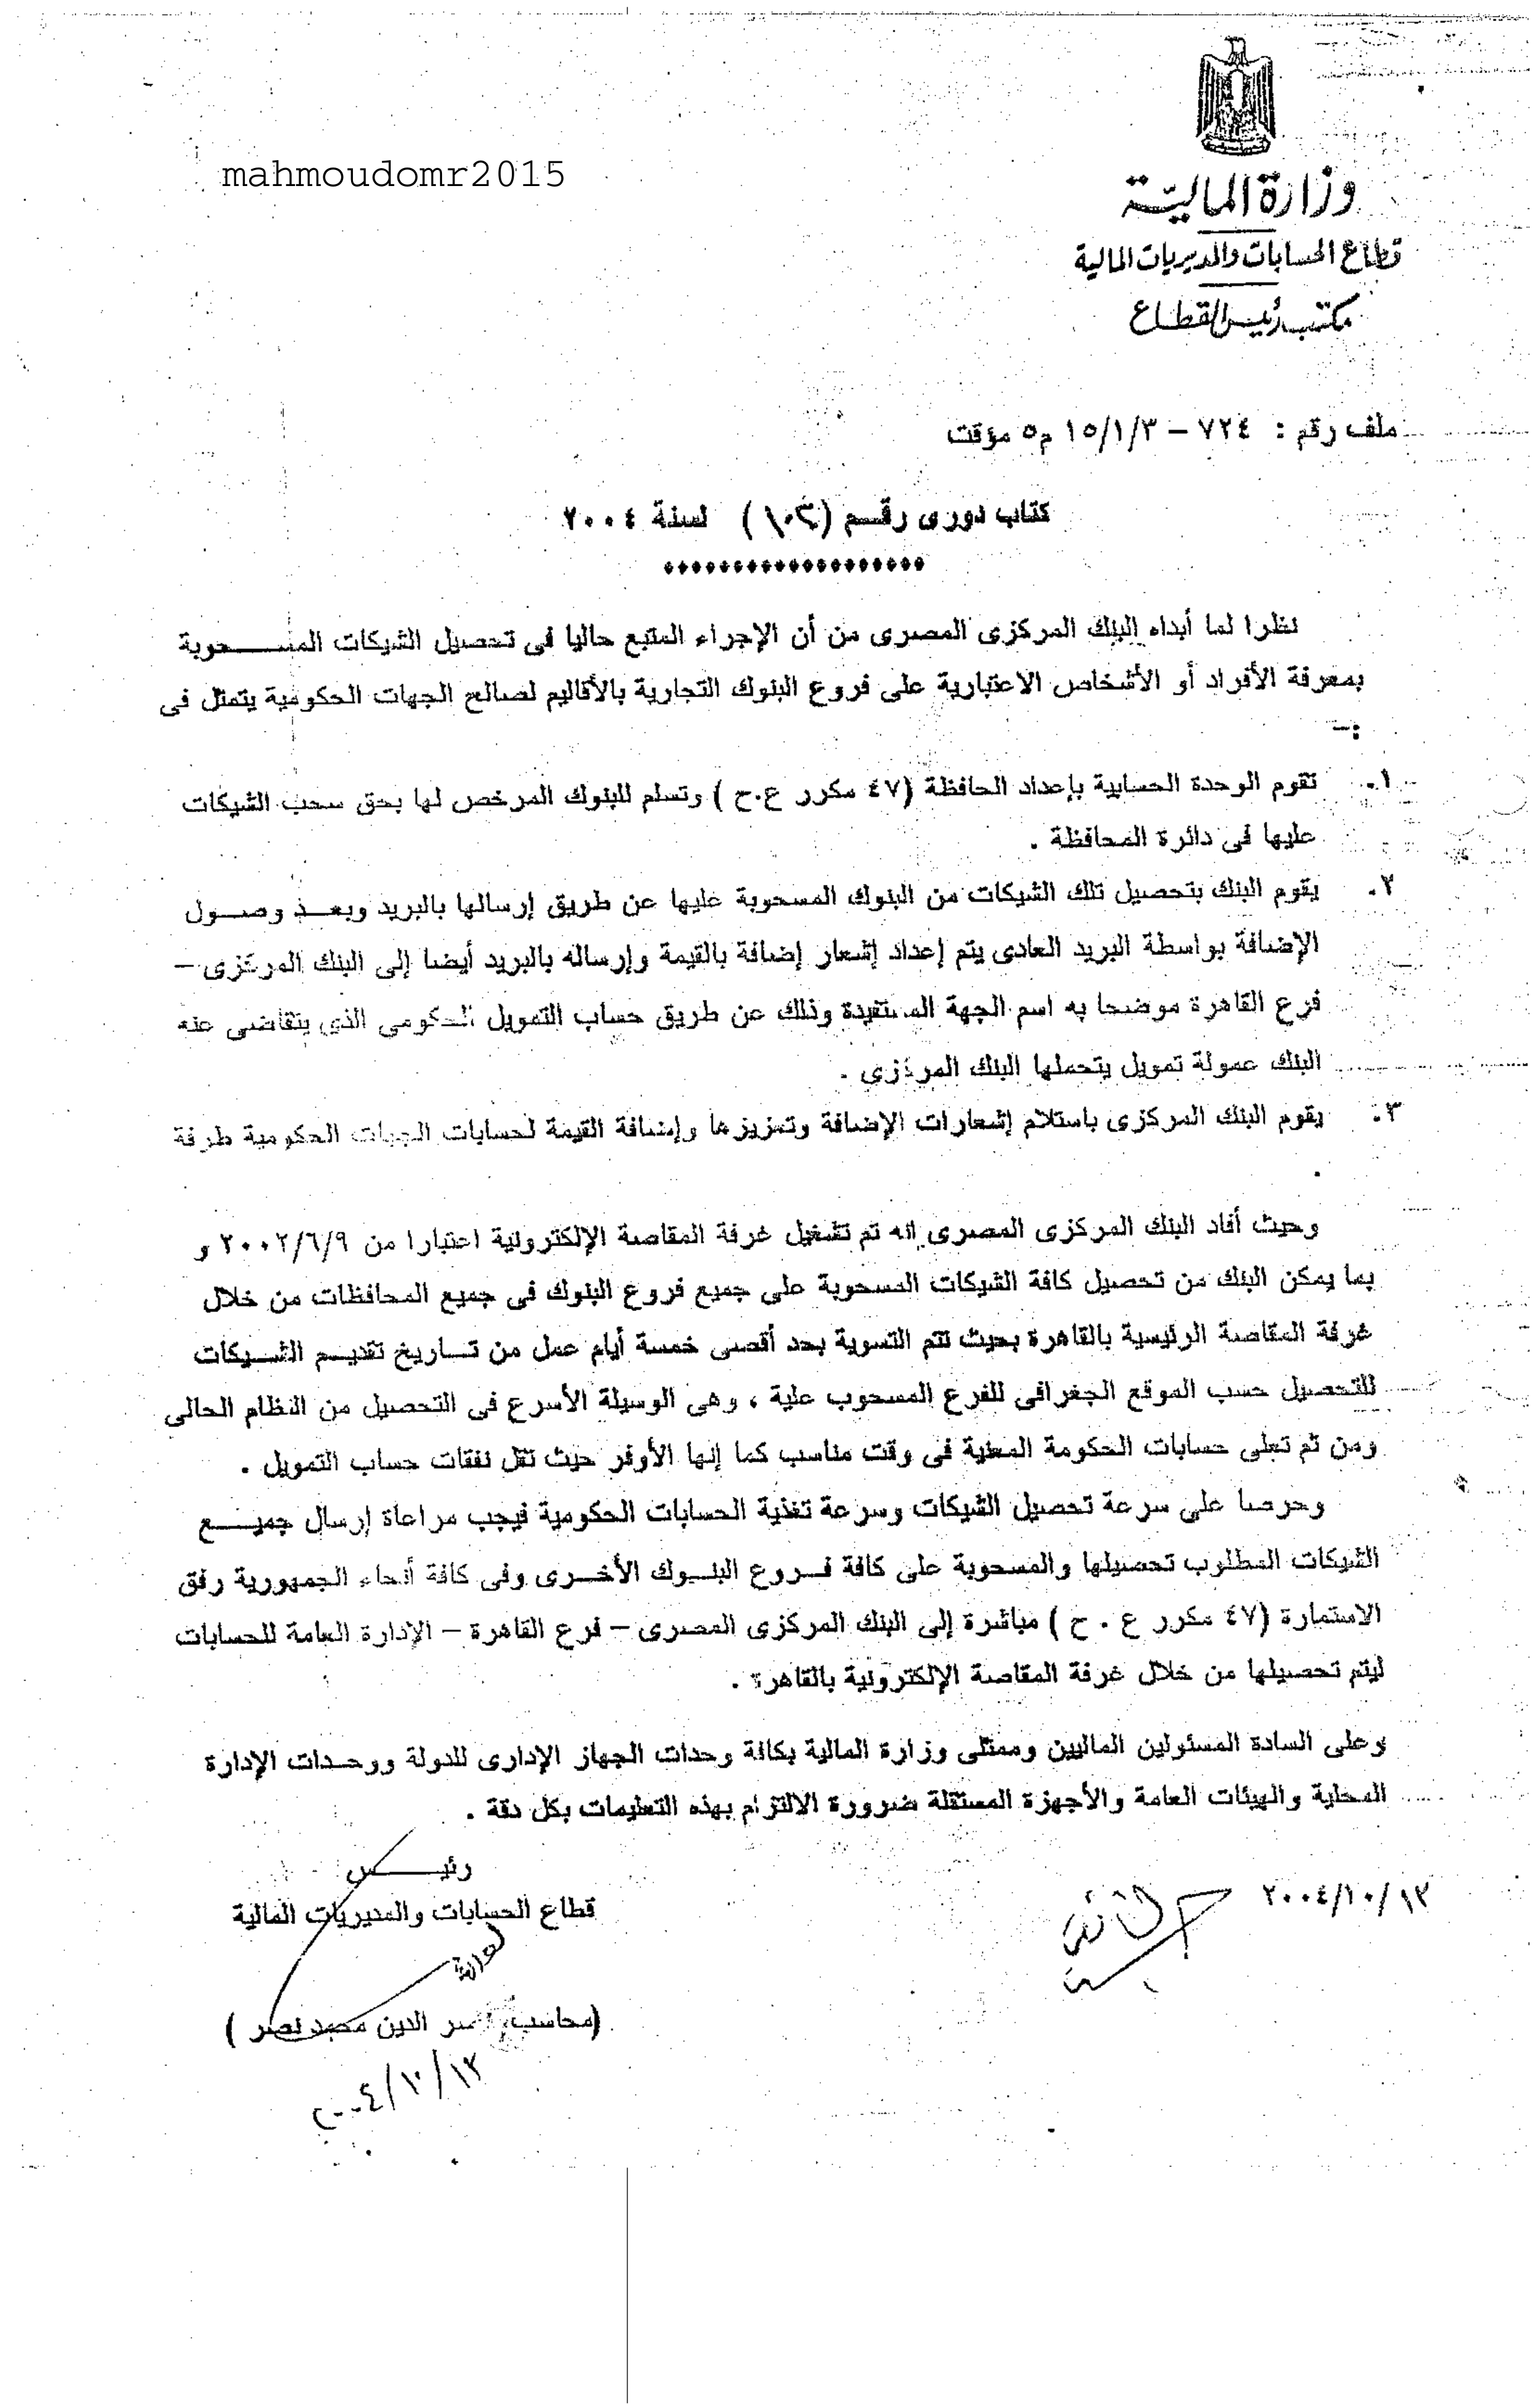 mahmoudomr2015
وزارة المالية
قطاع الحسابات والمديريات المالية
مكتب رئيس القطاع
ملف رقم : ٧٢٤ – ١٥/١/٣ م٥ مؤقت
كتاب دورى رقم ( ) لسنة ٢٠٠٤
*******************
نظرا لما أبداه البنك المركزى المصرى من أن الإجراء المتبع حاليا فى تحصيل الشيكات المسحوبة
بمعرفة الأفراد أو الأشخاص الاعتبارية على فروع البنوك التجارية بالأقاليم لصالح الجهات الحكومية يتمثل فى
:–
١. تقوم الوحدة الحسابية بإعداد الحافظة (٤٧ مكرر ع.ح ) وتسلم للبنوك المرخص لها بحق سحب الشيكات
عليها فى دائرة المحافظة .
٢. يقوم البنك بتحصيل تلك الشيكات من البنوك المسحوبة عليها عن طريق إرسالها بالبريد وبعد وصول
الإضافة بواسطة البريد العادى يتم إعداد إشعار إضافة بالقيمة وإرساله بالبريد أيضا إلى البنك المركزى –
فرع القاهرة موضحا به اسم الجهة المستفيدة وذلك عن طريق حساب التمويل الحكومى الذي يتقاضى عنه
البنك عمولة تمويل يتحملها البنك المركزي .
٣. يقوم البنك المركزى باستلام إشعارات الإضافة وتعزيزها وإضافة القيمة لحسابات الجهات الحكومية طرفة
.
وحيث أفاد البنك المركزى المصرى انه تم تشغيل غرفة المقاصة الإلكترونية اعتبارا من ٢٠٠٢/٦/٩ و
بما يمكن البنك من تحصيل كافة الشيكات المسحوبة على جميع فروع البنوك فى جميع المحافظات من خلال
غرفة المقاصة الرئيسية بالقاهرة بحيث تتم التسوية بحد أقصى خمسة أيام عمل من تاريخ تقديم الشيكات
للتحصيل حسب الموقع الجغرافى للفرع المسحوب علية ، وهى الوسيلة الأسرع فى التحصيل من النظام الحالى
ومن ثم تعلى حسابات الحكومة المعنية فى وقت مناسب كما إنها الأوفر حيث تقل نفقات حساب التمويل .
وحرصا على سرعة تحصيل الشيكات وسرعة تغذية الحسابات الحكومية فيجب مراعاة إرسال جميع
الشيكات المطلوب تحصيلها والمسحوبة على كافة فروع البنوك الأخرى وفى كافة أنحاء الجمهورية رفق
الاستمارة (٤٧ مكرر ع . ح ) مباشرة إلى البنك المركزى المصرى – فرع القاهرة – الإدارة العامة للحسابات
ليتم تحصيلها من خلال غرفة المقاصة الإلكترونية بالقاهرة .
وعلى السادة المسئولين الماليين وممثلى وزارة المالية بكافة وحدات الجهاز الإدارى للدولة ووحدات الإدارة
المحلية والهيئات العامة والأجهزة المستقلة ضرورة الالتزام بهذه التعليمات بكل دقة .
رئيس
قطاع الحسابات والمديريات المالية
٢٠٠٤/١٠/١٣
(محاسب/ الدين محمد نصر )
٢٠٠٤/١٠/١٣